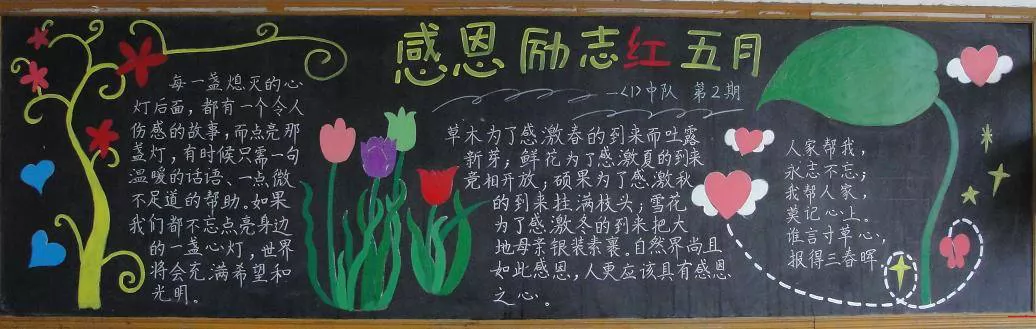 感恩 励志红五月
一〈1〉中队 第2期
每一盏熄灭的心
灯后面，都有一个令人
伤感的故事，而点亮那
盏灯，有时候只需一句
温暖的话语、一点微
不足道的帮助。如果
我们都不忘点亮身边
的一盏心灯，世界
将会充满希望和
光明。
草木为了感激春的到来而吐露
新芽；鲜花为了感激夏的到来
竞相开放；硕果为了感激秋
的到来挂满枝头；雪花
为了感激冬的到来把大
地母亲银装素裹。自然界尚且
如此感恩，人更应该具有感恩
之心。
人家帮我，
永志不忘；
我帮人家，
莫记心上。
谁言寸草心，
报得三春晖。